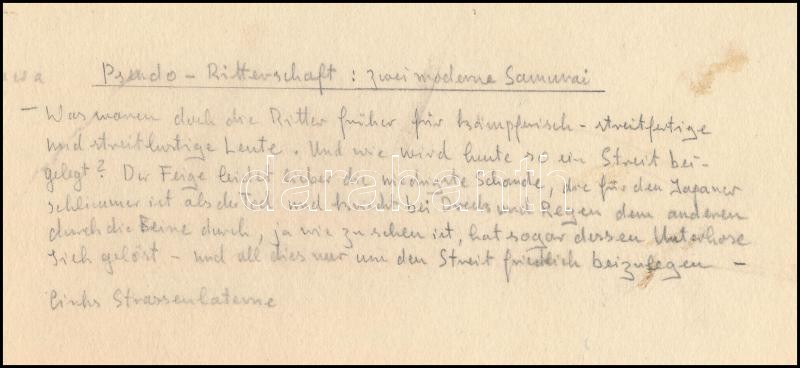 Pseudo - Ritterschaft : zwei moderne Samurai
- Was waren doch die Ritter früher für kämpferisch - streitfertige
und streitlustige Leute. Und wie wird heute so ein Streit bei-
gelegt? Der Feige leidet lieber die niedrigste Schande, die für den Japaner
schlimmer ist als der Tod und kriecht bei Dreck und Regen dem anderen
durch die Beine durch, ja wie zu sehen ist, hat sogar dessen Unterhose
sich gelöst - und all dies nur um den Streit friedlich beizulegen -
links Strassenlaterne
darabanth